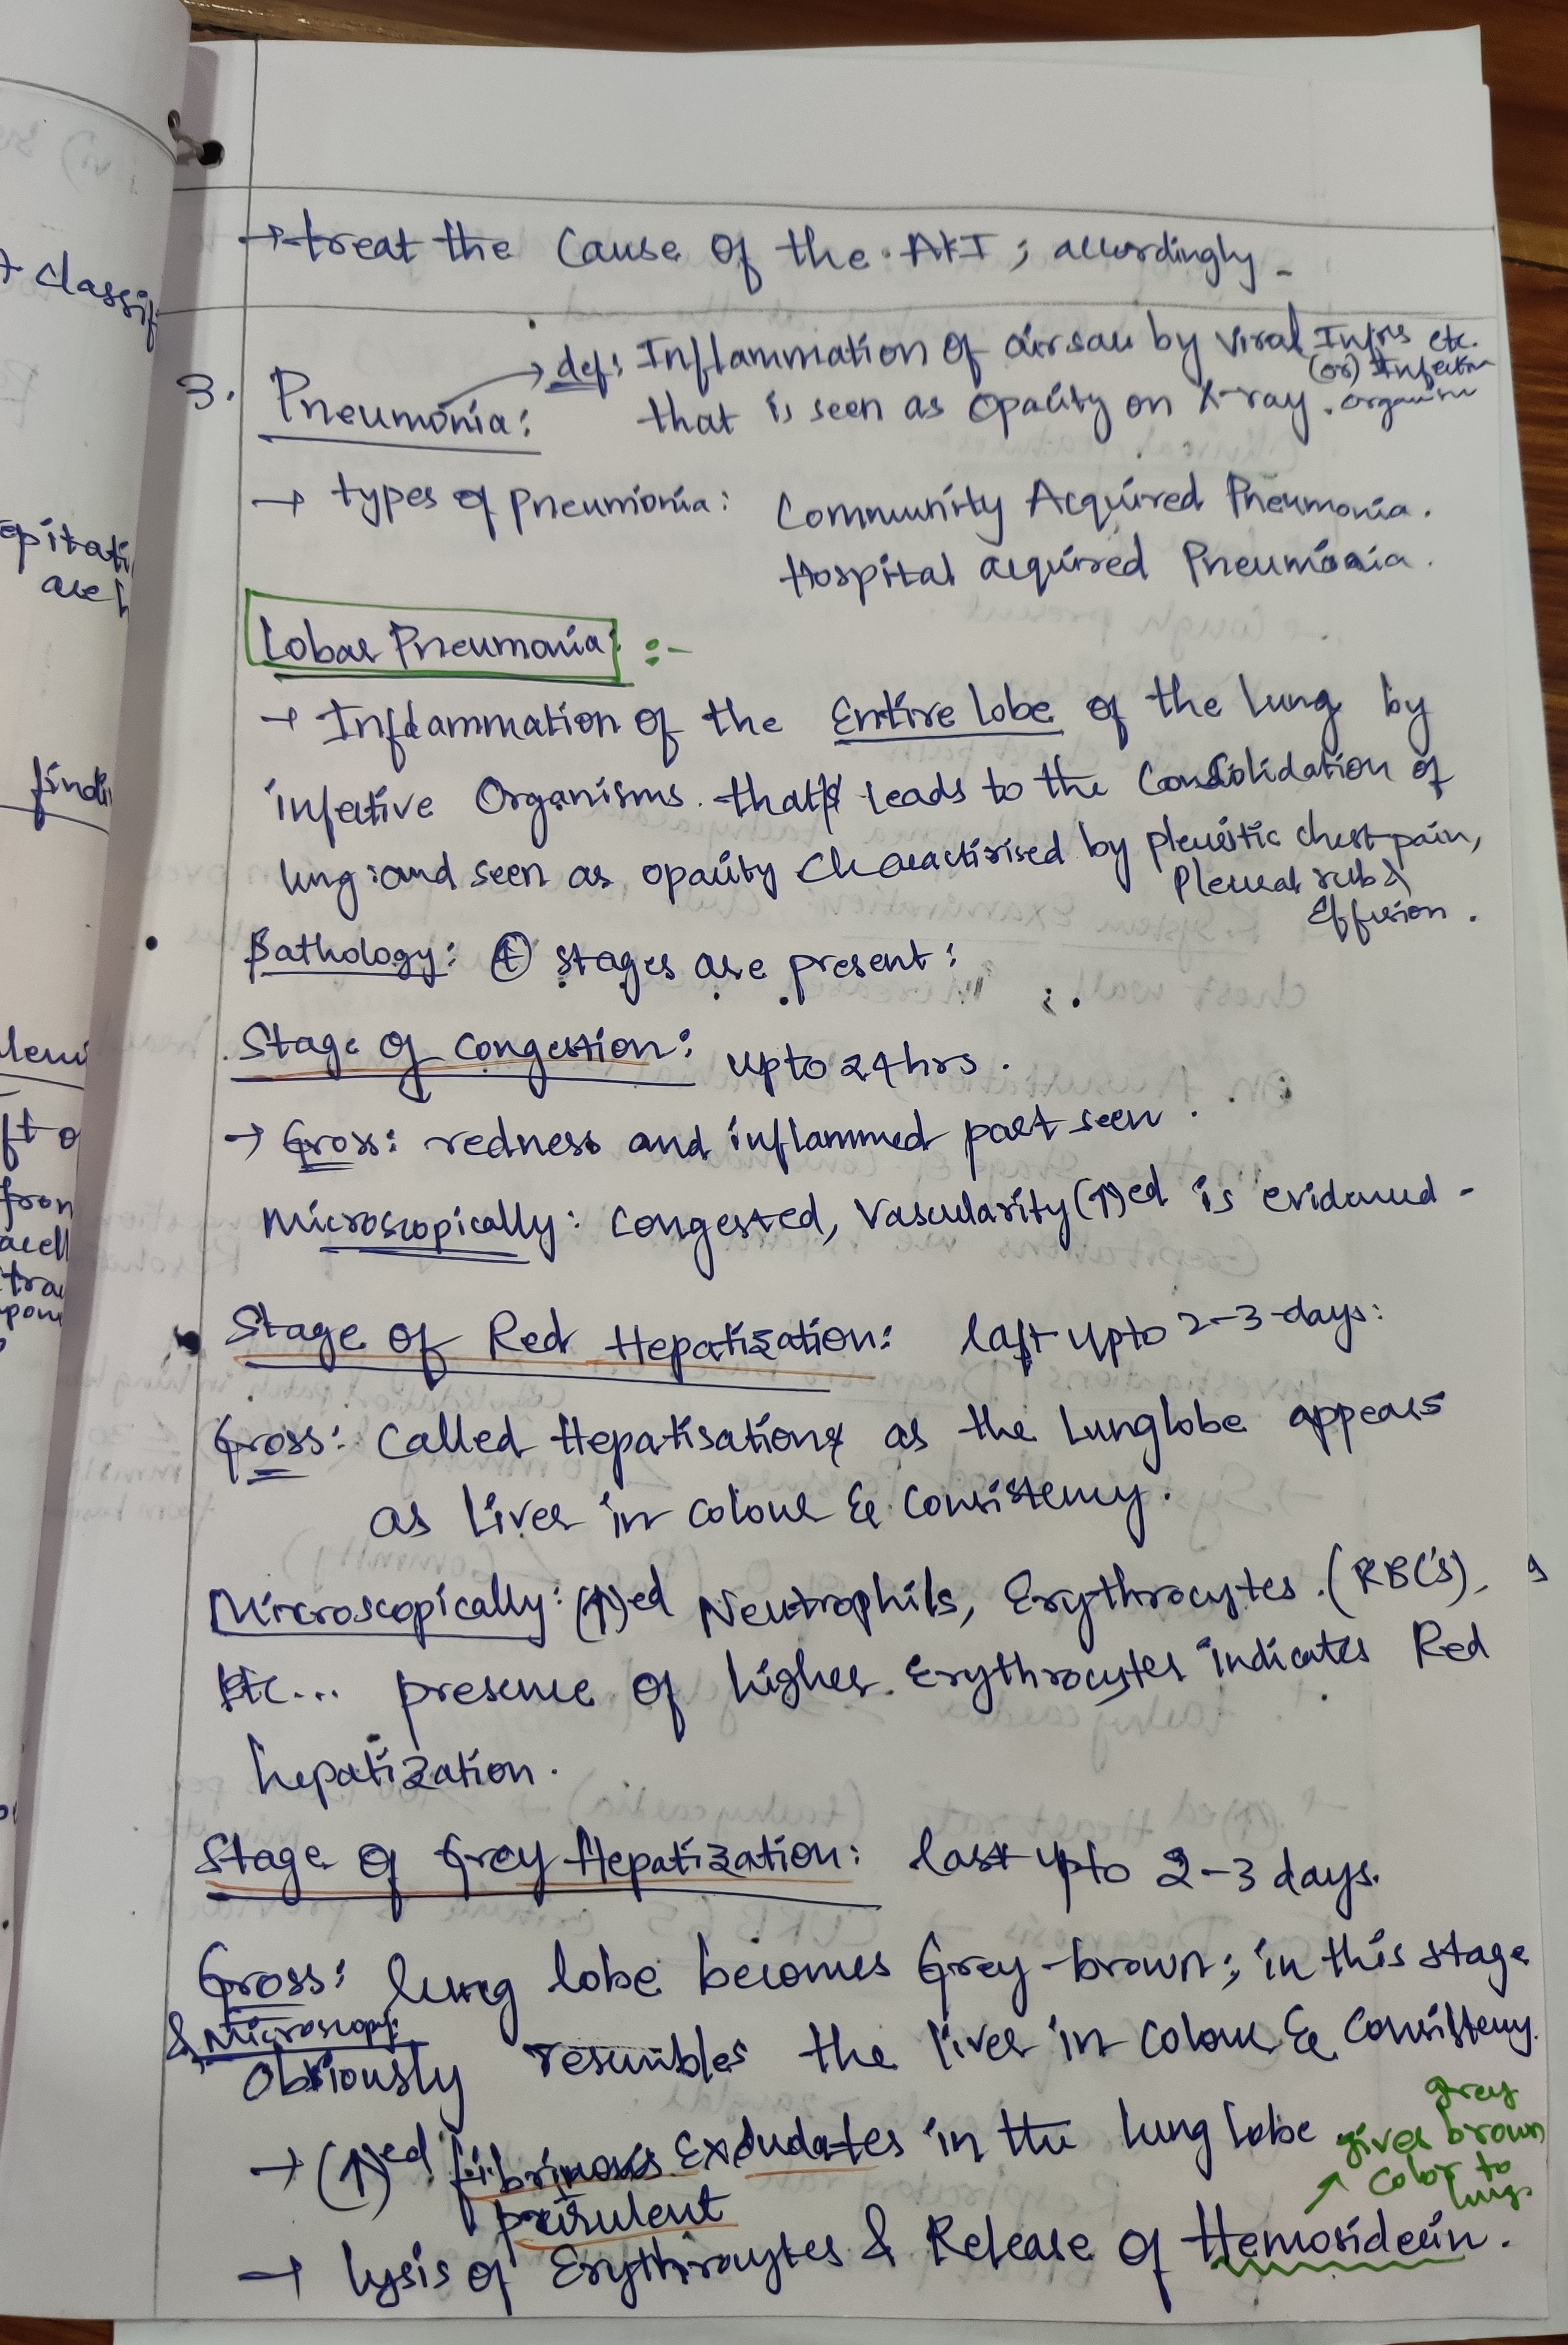 → treat the Cause Of the AKI ; accordingly -
3. Pneumonia: → def: Inflammation of airsau by viral Infns etc.
(or) Infection
that is seen as opacity on X-ray. organism
→ types of pneumonia: Community Acquired Pneumonia.
Hospital acquired Pneumonia.
Lobar Pneumonia: :-
→ Inflammation of the Entire lobe of the lung by
infective Organisms. that leads to the Consolidation of
lung and seen as opacity Characterised by pleuritic chest pain,
Pleural rub &
Effusion.
Pathology: 4 stages are present:
Stage of Congestion: upto 24hrs.
→ Gross: redness and inflammed part seen.
Microscopically: Congested, Vascularity (↑)ed is evidenced -
Stage Of Red Hepatization: last upto 2-3-days:
Gross: Called Hepatisation as the Lunglobe appears
as Liver in Colour & Consistency.
Mircroscopically: (↑)ed Neutrophils, Erythrocytes. (RBC's),
Etc... presence of higher Erythrocytes indicates Red
hepatization.
Stage of Grey Hepatization: last upto 2-3 days.
Gross: lung lobe becomes Grey-brown; in this stage
& Microscopy:
Obviously resembles the liver in Colour & Consistency.
→ (↑)ed fibrinous Exdudates in the lung lobe
purulent
grey
gives brown
color to
lung.
→ lysis of Erythrocytes & Release of Hemosiderin.